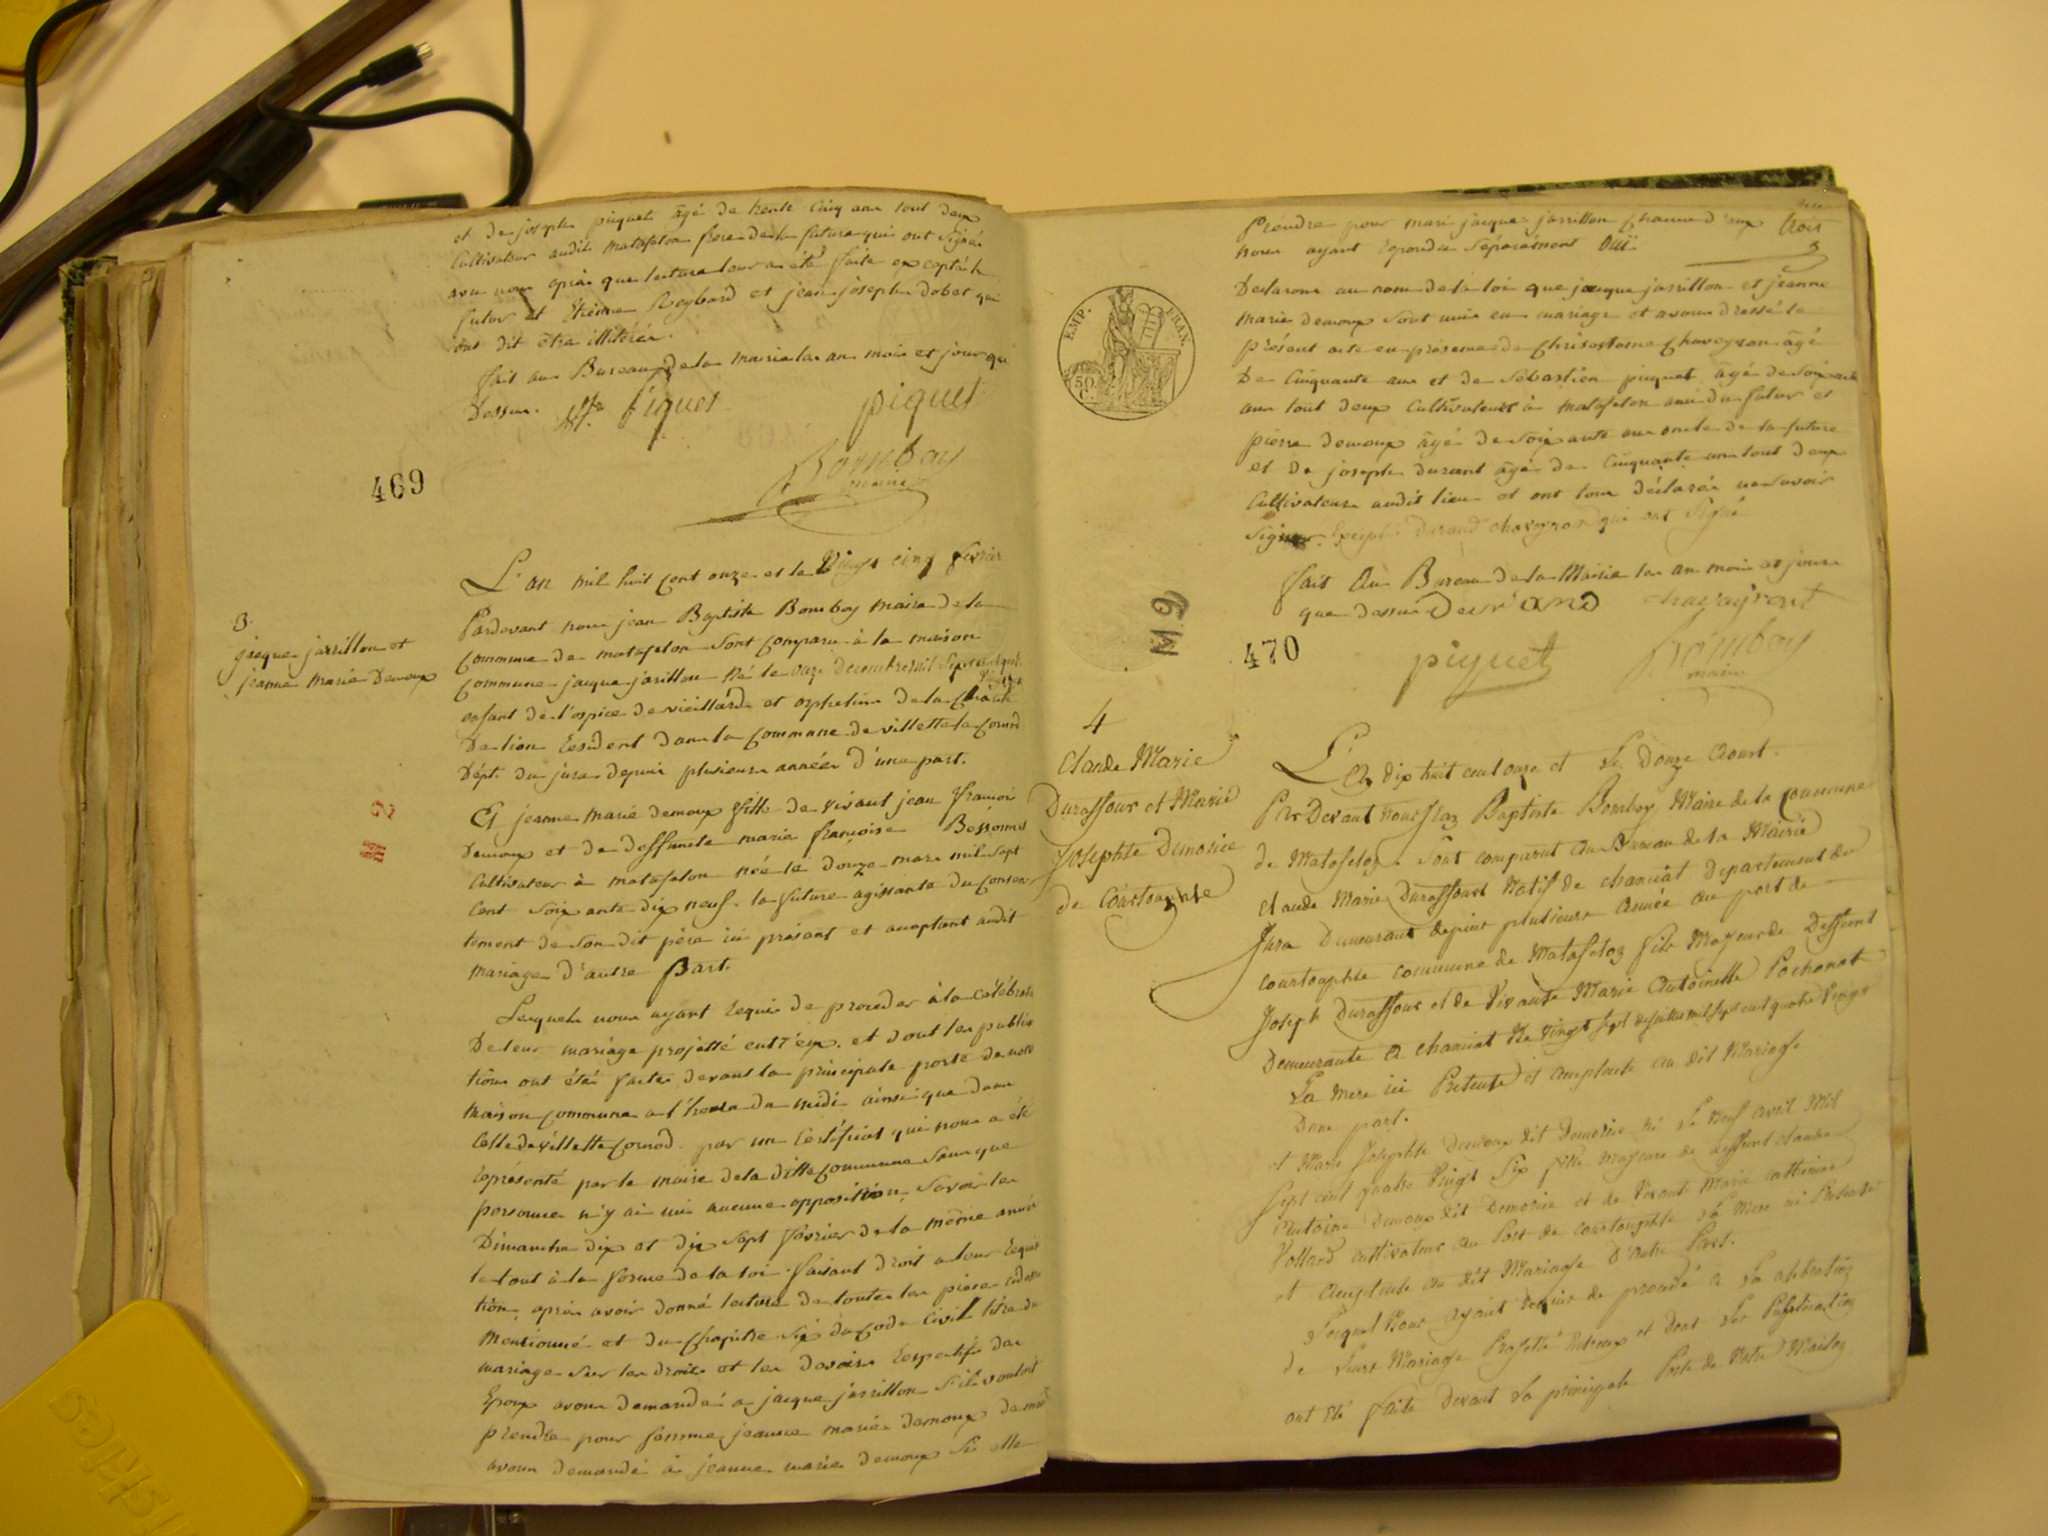 et de joseph piquet âgé de trente cinq ans tout deux
Cultivateur audit matafelon frere de la future qui ont signé
avec nous après que lecture leur a été faite excepté le
futur et Etienne Reybard et jean joseph dobet qui
ont dit être illitéré.
fait au Bureau de la mairie les an mois et jour que
Dessus. piquet piquet
Bomboy
maire
469
L'an mil huit cent onze et le Vingt cinq fevrier
3.
Pardevant nous jean Baptiste Bomboy maire de la
jacque jarrillon et
commune de matafelon sont comparu à la maison
jeanne marie Demoux
commune jacque jarillon Né le onze decembre mil sept cent
enfant de l'ospice de vieillards et orphelins de la Charité
De lion resident dans la commune de villette la Cornod
Dépt. du jura depuis plusieurs année d'une part.
Et jeanne marie demoux fille de vivant jean françois
Demoux et de deffuncte marie françoise Bessonnet
Cultivateur à matafelon née le douze mars mil sept
Cent soixante dix neuf. la future agissante du consen
tement de son dit père ici présent et acceptant audit
mariage d'autre Part.
Lesquels nous ayant requis de proceder à la célébrati
De leur mariage projetté entr'eux. et dont les publica
tions ont étés faites devant la principale porte de notre
maison commune a l'heure de midi ainsi que dans
Celle de villette Cornod par un Certificat qui nous a été
représenté par le maire de la ditte commune sans que
personne n'y ai mis aucune opposition. savoir les
Dimanche dix et dix sept fevrier de la même année
le tout à la forme de la loi. faisant droit a leur requi
tion, après avoir donné lecture de toutes les pièce cidessu
mentionné et du chapitre six du code Civil titre du
mariage sur les droits et les devoirs respectifs des
Epoux avons demandé à jacque jarrillon s'il vouloit
prendre pour femme jeanne marie demoux de même
avons demandé à jeanne marie demoux si elle
Prendre pour mari jacque jarrillon chacun d'eux trois
nous ayant repondu séparément Oui.
Declarons au nom de la loi que jacque jarrillon et jeanne
marie demoux sont unis en mariage et avons dressé le
présent acte en présence de Chrisostome Chaveyron âgé
De Cinquante ans et de Sébastien piquet âgé de soixante
ans tout deux Cultivateurs à matafelon amis du futur et
pierre demoux âgé de soixante ans oncle de la future
et de joseph durant âgé de Cinquante ans tout deux
Cultivateurs audit lieu et ont tous déclarés ne savoir
signer. Excepté Durand chaveyron qui ont signé
fait Au Bureau de la Mairie les an mois et jours
que dessus Durand chavayront
470
piquet Bomboy
maire
EMP. FRAN.
50 C.
M 9
4
Claude Marie
Duraffour et Marie
Josephte Demorice
de Courtouphle
L'an dix huit cent onze et Le Douze Aoust.
Par Devant nous Jean Baptiste Bomboy Maire de la commune
de Matafelon. sont comparut Au Bureau de la Mairie
Claude Marie Duraffourt Natif de chanciat departement du
Jura Demeurant depuis plusieurs Année au port de
courtouphle commune de Matafelon fils Majeur de Deffunt
Joseph Duraffour et de Vivante Marie Antoinette Pochonat
Demeurante A chanciat Né vingt sept mil sept cent quatre Vingt
La Mere ici Presente et Acceptante au dit Mariage
Dune part.
et Marie Josephte Demoux dit Demorice né Le Neuf avril Mil
Sept cent quatre Vingt Six fille Majeure de deffunt claude
Antoine Demoux dit Demorice et de Vivante Marie catherine
Volland cultivateur au Port de courtouphle sa Mere ici Presente
et Acceptante au dit Mariage D'autre Part.
Lequel Nous ayant requis de procedé a La celebration
de Leurs Mariage Projetté Entreux et dont Les Publication
ont Eté faite Devant La principale Porte de Notre Maison